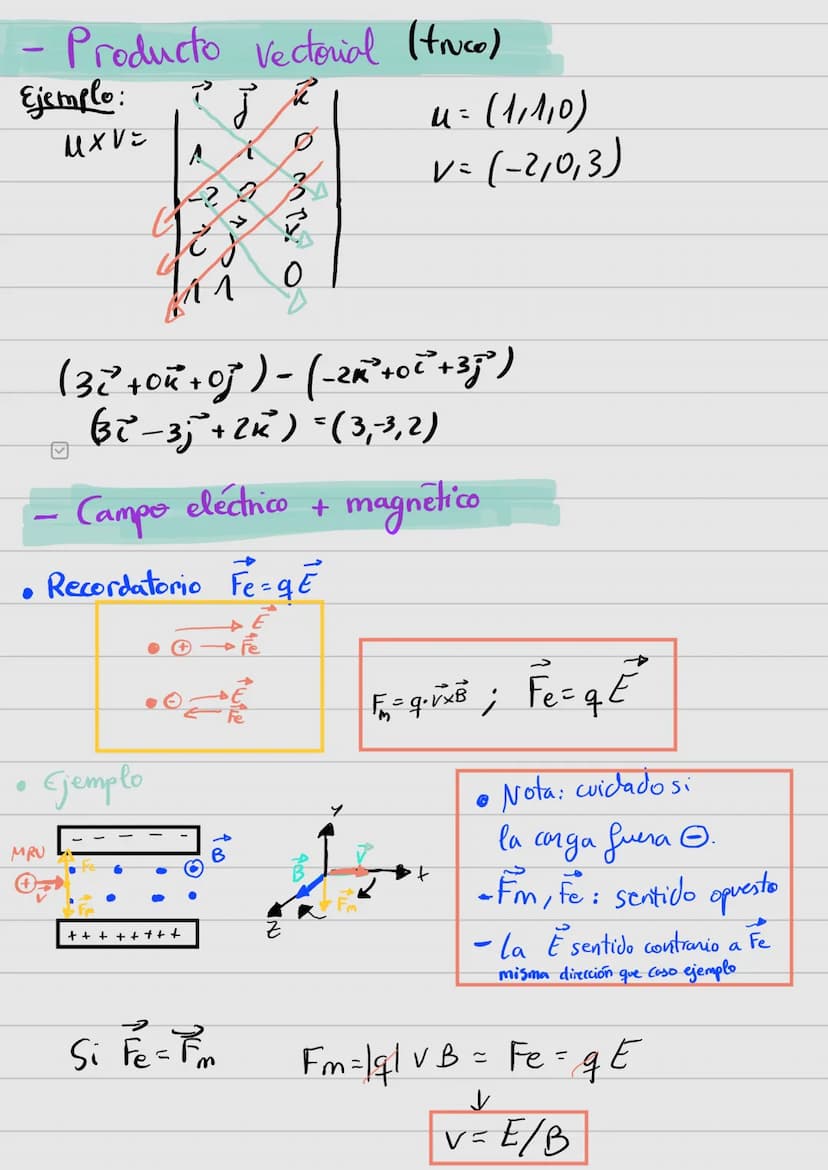 - Producto vectorial (truco)
Ejemplo:
u = (1,1,0)
v = (-2,0,3)
u x v =
i⃗ j⃗ k⃗
1 1 0
-2 0 3
i⃗ j⃗ k⃗
1 1 0
(3i⃗ + 0k⃗ + 0j⃗) - (-2k⃗ + 0i⃗ + 3j⃗)
(3i⃗ - 3j⃗ + 2k⃗) = (3,-3,2)
- Campo eléctrico + magnético
• Recordatorio F⃗e = qE⃗
• ⊕ → E⃗ F⃗e
• ⊖ → E⃗ ← F⃗e
Fm = q·v⃗xB⃗ ; F⃗e = qE⃗
• Ejemplo
- - - - - -
MRU
⊕ v⃗
Fe
Fm
B⃗
+ + + + + + + +
Y
B⃗ v⃗
x
Fm
Z
• Nota: cuidado si
la carga fuera ⊖.
- F⃗m, F⃗e: sentido opuesto
- la E⃗ sentido contrario a F⃗e
misma dirección que caso ejemplo
Si F⃗e = F⃗m
Fm = |q| v B = Fe = q E
↓
v = E/B